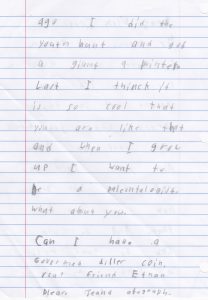 ago I did the
youth hunt and got
a giant 9 pinter
Last I thinck it
is so cool that
you are like that
and when I grow
up I want to
be a paleontologist.
what about you.
Can I have a
Goverment Siller coin.
your friend Ethan
Pleas Send